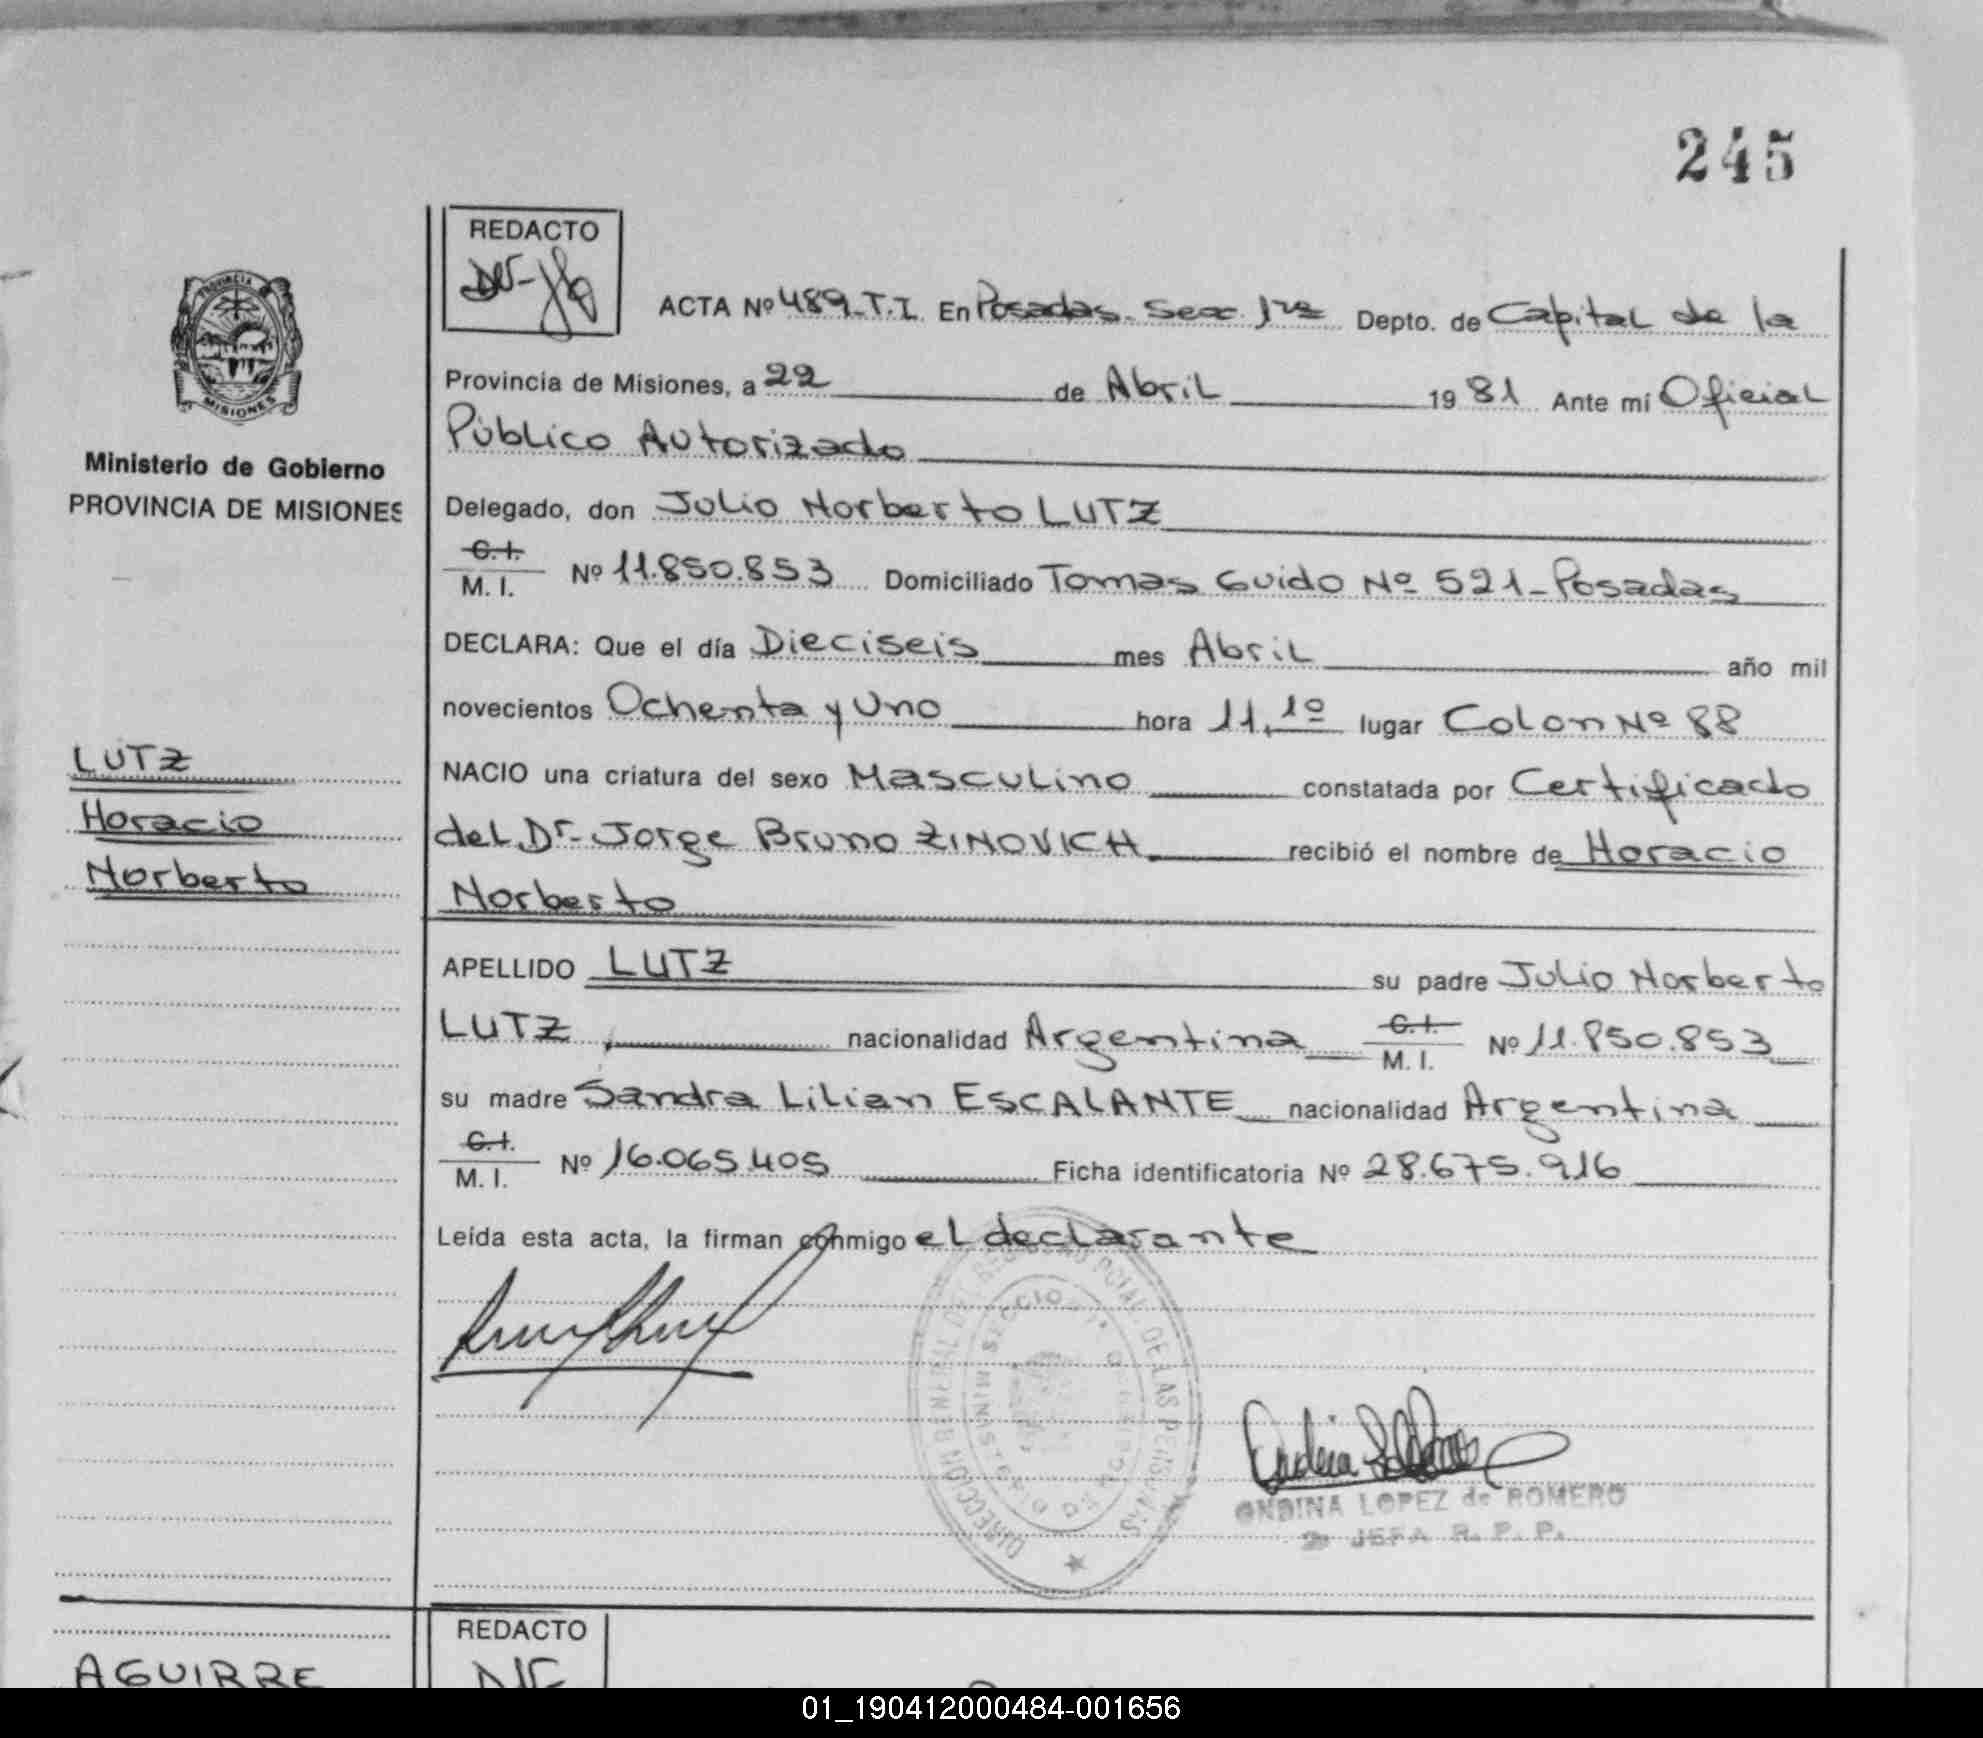 245
REDACTO
ACTA Nº 489-T.I. En Posadas. Secc. 1ra Depto. de Capital de la
Provincia de Misiones, a 22 de Abril 1981 Ante mí Oficial
Público Autorizado
Delegado, don Julio Norberto LUTZ
C.I.
M. I. Nº 11.850.853 Domiciliado Tomas Guido Nº 521-Posadas
DECLARA: Que el día Dieciseis mes Abril año mil
novecientos Ochenta y Uno hora 11,10 lugar Colon Nº 88
NACIO una criatura del sexo Masculino constatada por Certificado
del Dr. Jorge Bruno ZINOVICH recibió el nombre de Horacio
Norberto
APELLIDO LUTZ su padre Julio Norberto
LUTZ, nacionalidad Argentina C.I. M. I. Nº 11.850.853
su madre Sandra Lilian ESCALANTE nacionalidad Argentina
C.I.
M. I. Nº 16.065.405 Ficha identificatoria Nº 28.675.916
Leída esta acta, la firman conmigo el declarante
ONDINA LOPEZ de ROMERO
JEFA R. P. P.
PROVINCIA
MISIONES
Ministerio de Gobierno
PROVINCIA DE MISIONES
LUTZ
Horacio
Norberto
AGUIRRE
REDACTO
01_190412000484-001656